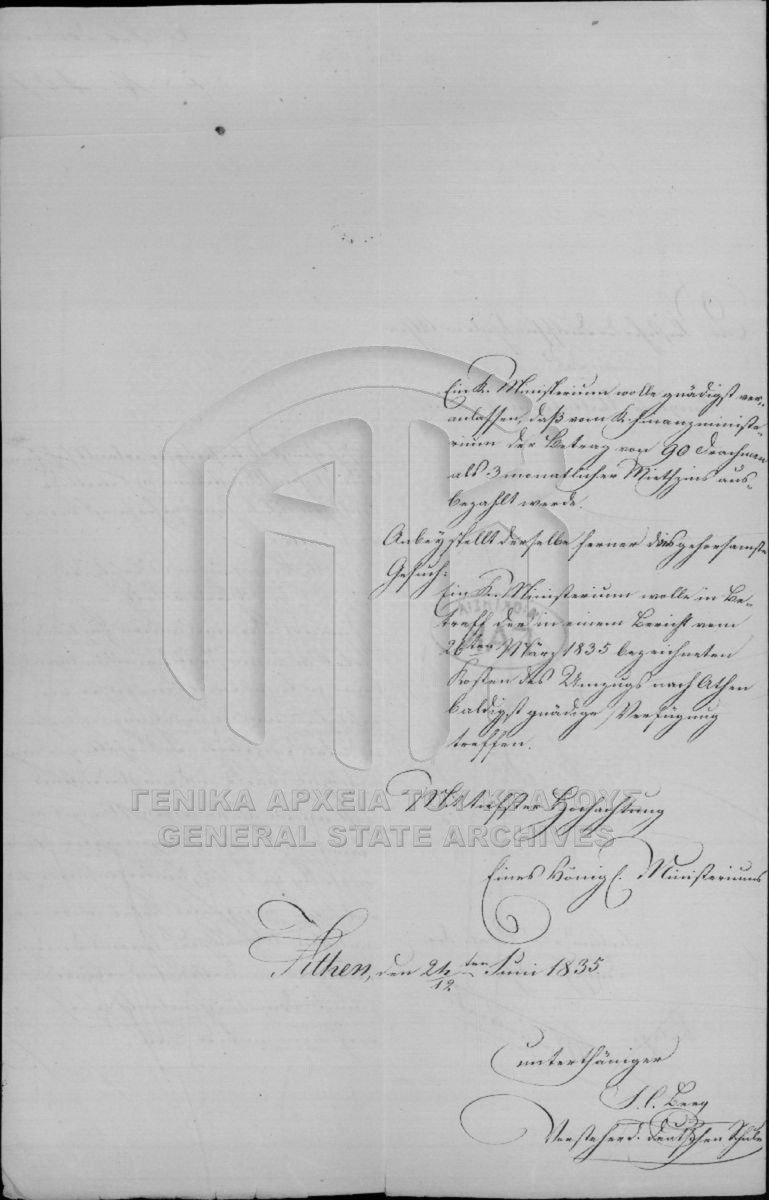 Ein K. Ministerium wolle gnädigst ver-
anlassen, daß vom K. Finanzministe-
rium der Betrag von 90 Drachmen
als 3 monatlicher Miethzins aus-
bezahlt werde.
Anbey stellt derselbe ferner das gehorsamste
Gesuch:
Ein K. Ministerium wolle in Be-
treff der in einem Bericht vom
26ten März 1835 bezeichneten
Kosten des Umzugs nach Athen
baldigst gnädige Verfügung
treffen.
Mit tiefster Hochachtung
ΓΕΝΙΚΑ ΑΡΧΕΙΑ ΤΟΥ ΚΡΑΤΟΥΣ
GENERAL STATE ARCHIVES
Eines Königl. Ministeriums
Athen, den 24/12ten Juni 1835.
unterthäniger
Vorsteher d. deutschen Schule